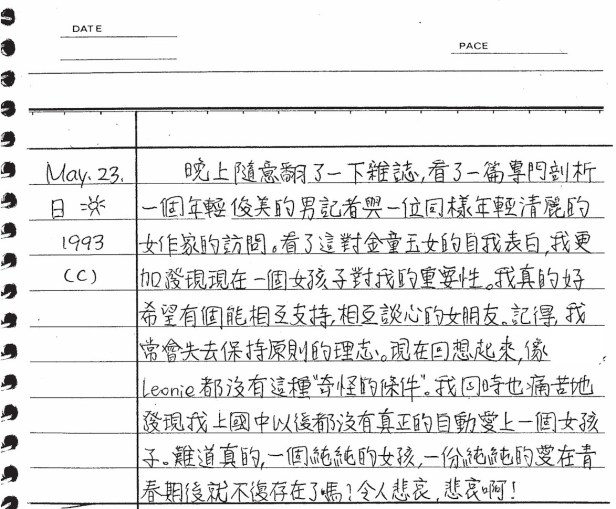 DATE
PACE
May. 23.
日
1993
(C)
晚上隨意翻了一下雜誌,看了一篇專門剖析
一個年輕俊美的男記者與一位同樣年輕清麗的
女作家的訪問。看了這對金童玉女的自我表白,我更
加發現現在一個女孩子對我的重要性。我真的好
希望有個能相互支持,相互談心的女朋友。記得,我
常會失去保持原則的理志。現在回想起來,像
Leonie都沒有這種"奇怪的條件"。我同時也痛苦地
發現我上國中以後都沒有真正的自動愛上一個女孩
子。難道真的,一個純純的女孩,一份純純的愛在青
春期後就不復存在了嗎?令人悲哀,悲哀啊!